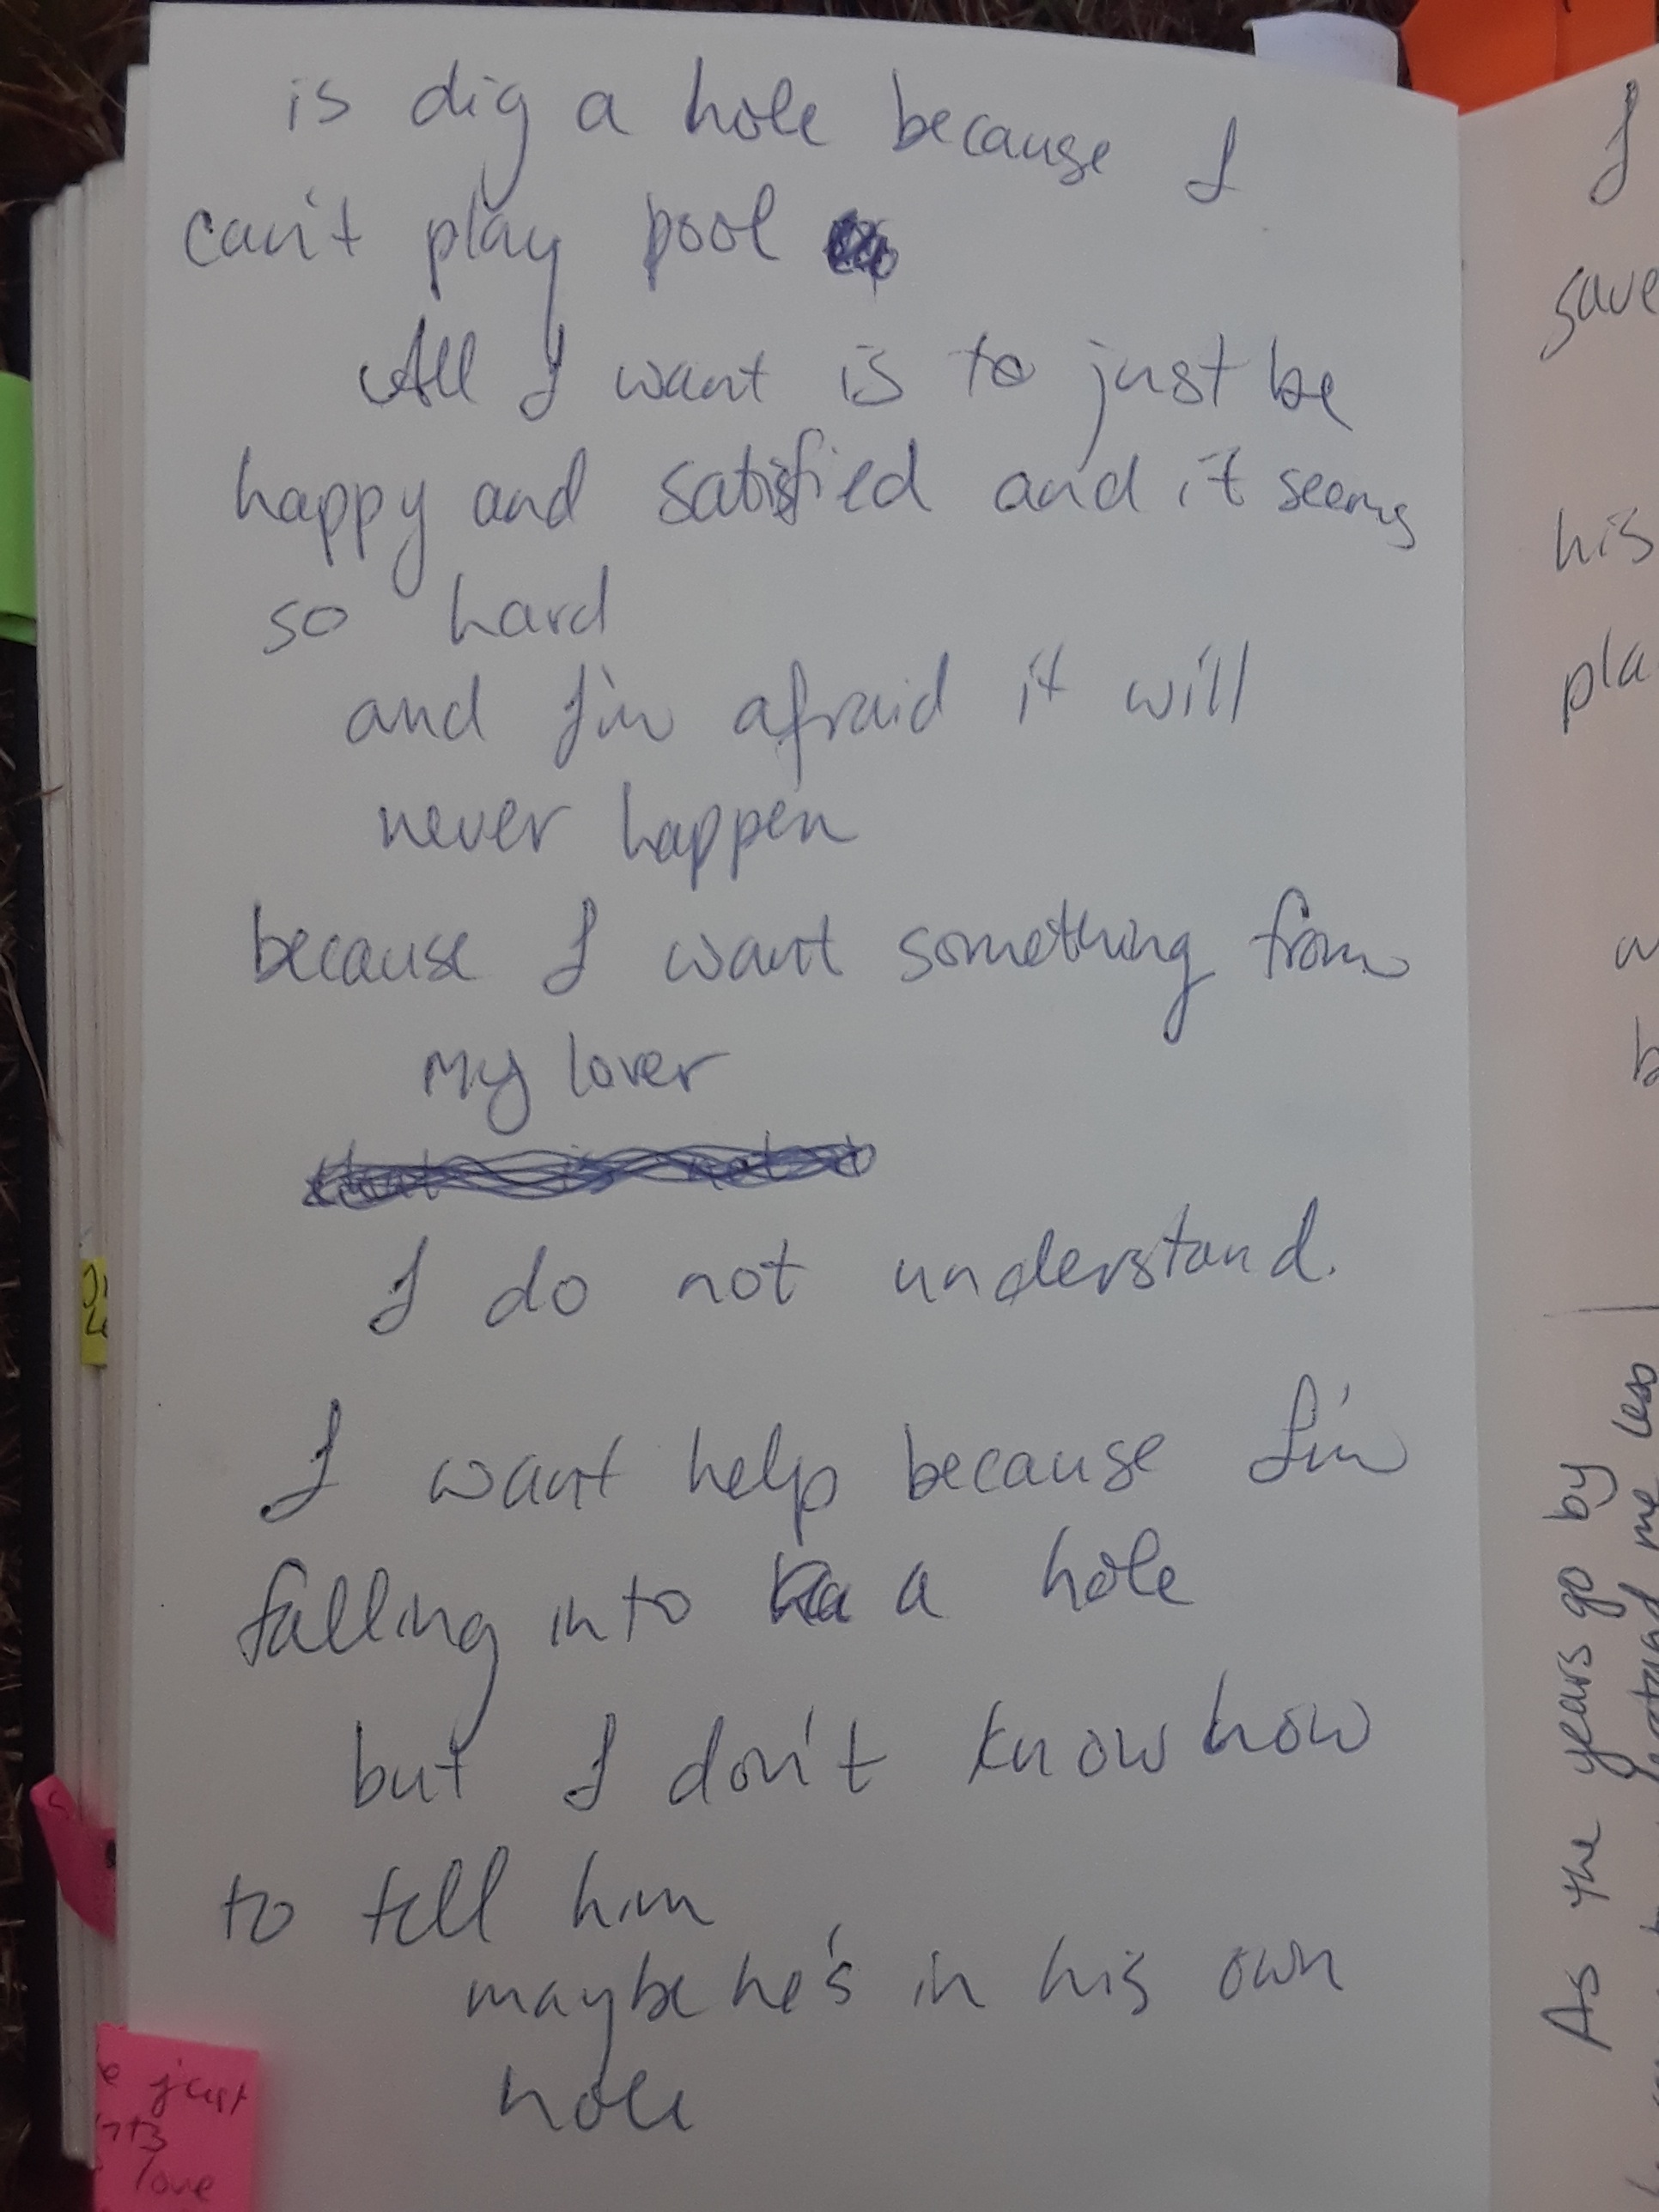 is dig a hole because I
can't play pool
All I want is to just be
happy and satisfied and it seems
so hard
and I'm afraid it will
never happen
because I want something from
my lover
I do not understand.
I want help because I'm
falling into a hole
but I don't know how
to tell him
maybe he's in his own
hole
just
love
I
save
his
pla
As the years go by
me less